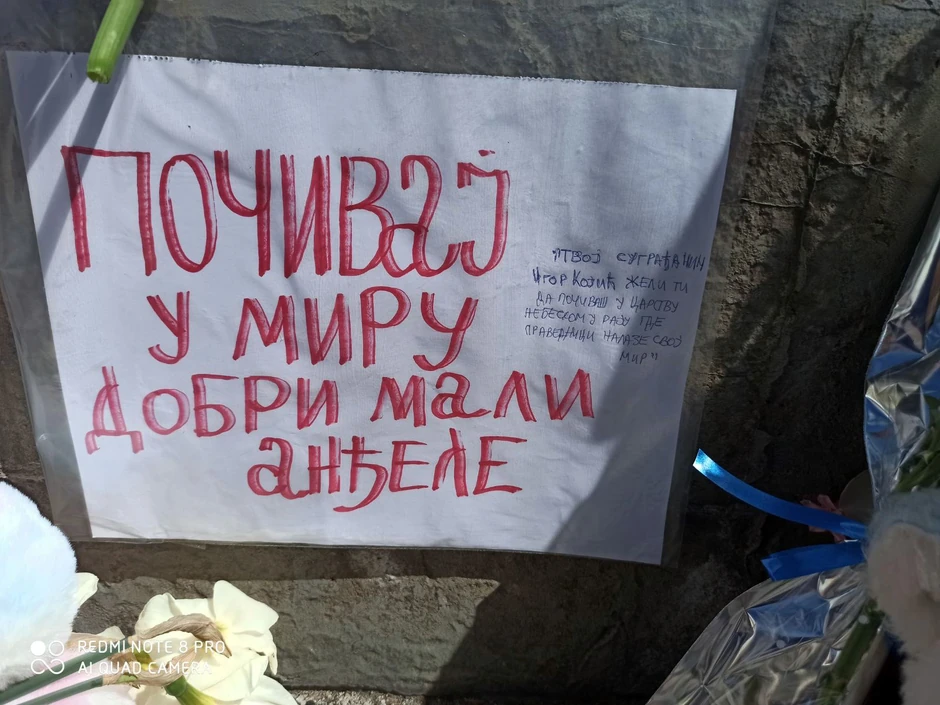 ПОЧИВАЈ
У МИРУ
ДОБРИ МАЛИ
АНЂЕЛЕ
ТВОЈ СУГРАЂАНИН
ИГОР КОЈИЋ ЖЕЛИ ТИ
ДА ПОЧИВАШ У ЦАРСТВУ
НЕБЕСКОМ У РАЈУ ГДЕ
ПРАВЕДНИЦИ НАЛАЗЕ СВОЈ
МИР"
REDMI NOTE 8 PRO
AI QUAD CAMERA